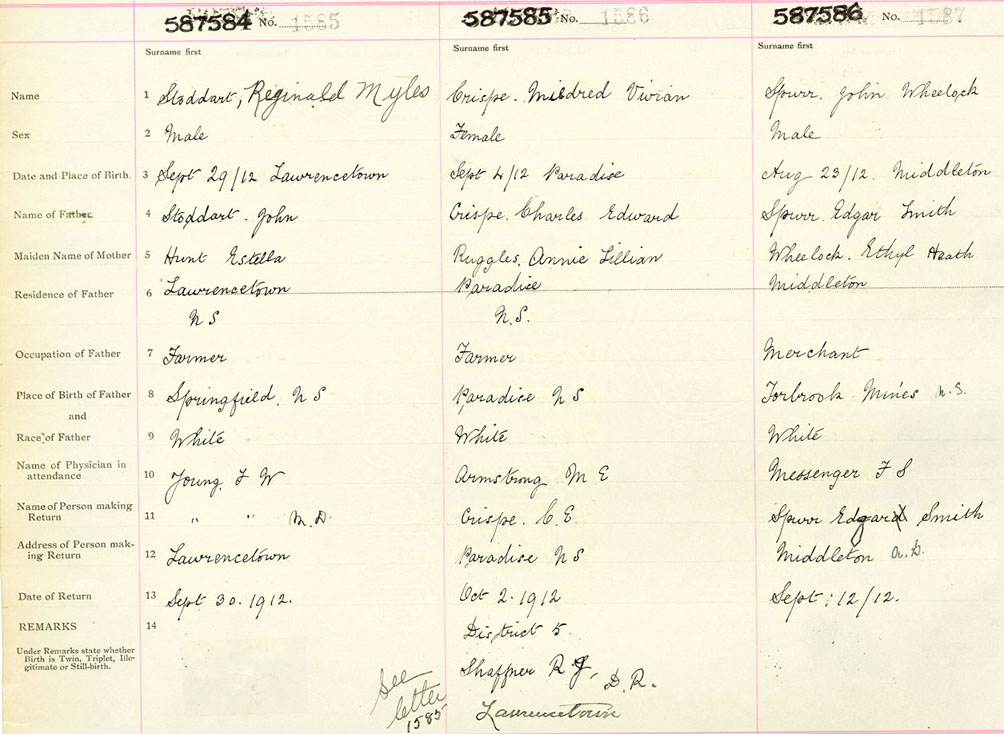 587584 No. 1585 587585 No. 1586 587586 No. 1587
Surname first Surname first Surname first
Name 1 Stoddart, Reginald Myles Crispe. Mildred Vivian Spurr. John Wheelock
Sex 2 Male Female Male
Date and Place of Birth 3 Sept 29/12 Lawrencetown Sept 4/12 Paradise Aug 23/12. Middleton
Name of Father 4 Stoddart. John Crispe. Charles Edward Spurr. Edgar Smith
Maiden Name of Mother 5 Hunt Estella Ruggles. Annie Lillian Wheelock. Ethyl Heath
Residence of Father 6 Lawrencetown Paradise Middleton
N S N.S.
Occupation of Father 7 Farmer Farmer Merchant
Place of Birth of Father 8 Springfield. N S Paradise N S Torbrook Mines N.S.
and
Race of Father 9 White White White
Name of Physician in
attendance 10 Young. F W Armstrong M E Messenger F S
Name of Person making
Return 11 " " M.D. Crispe. C.E. Spurr Edgar Smith
Address of Person mak-
ing Return 12 Lawrencetown Paradise N S Middleton
Date of Return 13 Sept 30. 1912. Oct 2. 1912 Sept: 12/12.
REMARKS 14 District 5.
Under Remarks state whether
Birth is Twin, Triplet, Ille-
gitimate or Still-birth.
Shaffner R J, D.R.
Lawrencetown
See
letter
1585